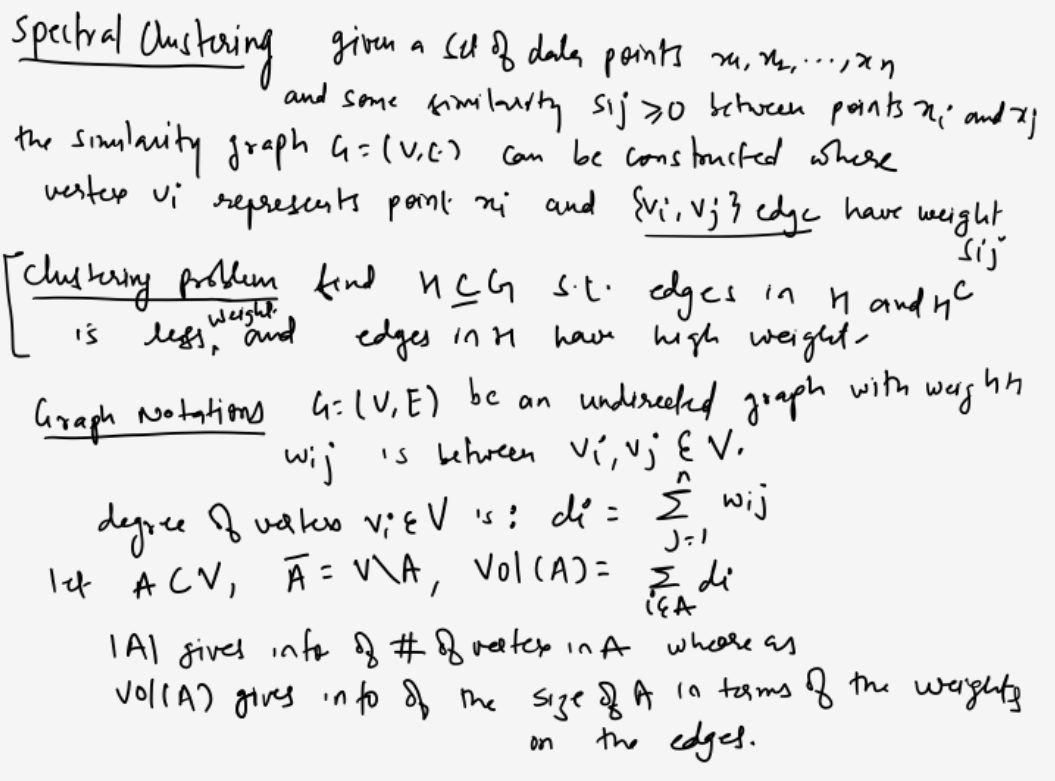 Spectral Clustering given a set of data points x1, x2, ..., xn
and some similarity sij ⩾ 0 between points xi and xj
the similarity graph G = (V, E) can be constructed where
vertex vi represents point xi and {vi, vj} edge have weight
sij
Clustering problem find H ⊆ G s.t. edges in H and H^C
is less weight, and edges in H have high weight.
Graph Notations G = (V, E) be an undirected graph with weight
wij is between vi, vj ∈ V.
degree of vertex vi ∈ V is : di = \sum_{j=1}^{n} wij
let A ⊂ V, \overline{A} = V\A, Vol(A) = \sum_{i∈A} di
|A| gives info of # of vertex in A whereas
Vol(A) gives info of the size of A in terms of the weights
on the edges.